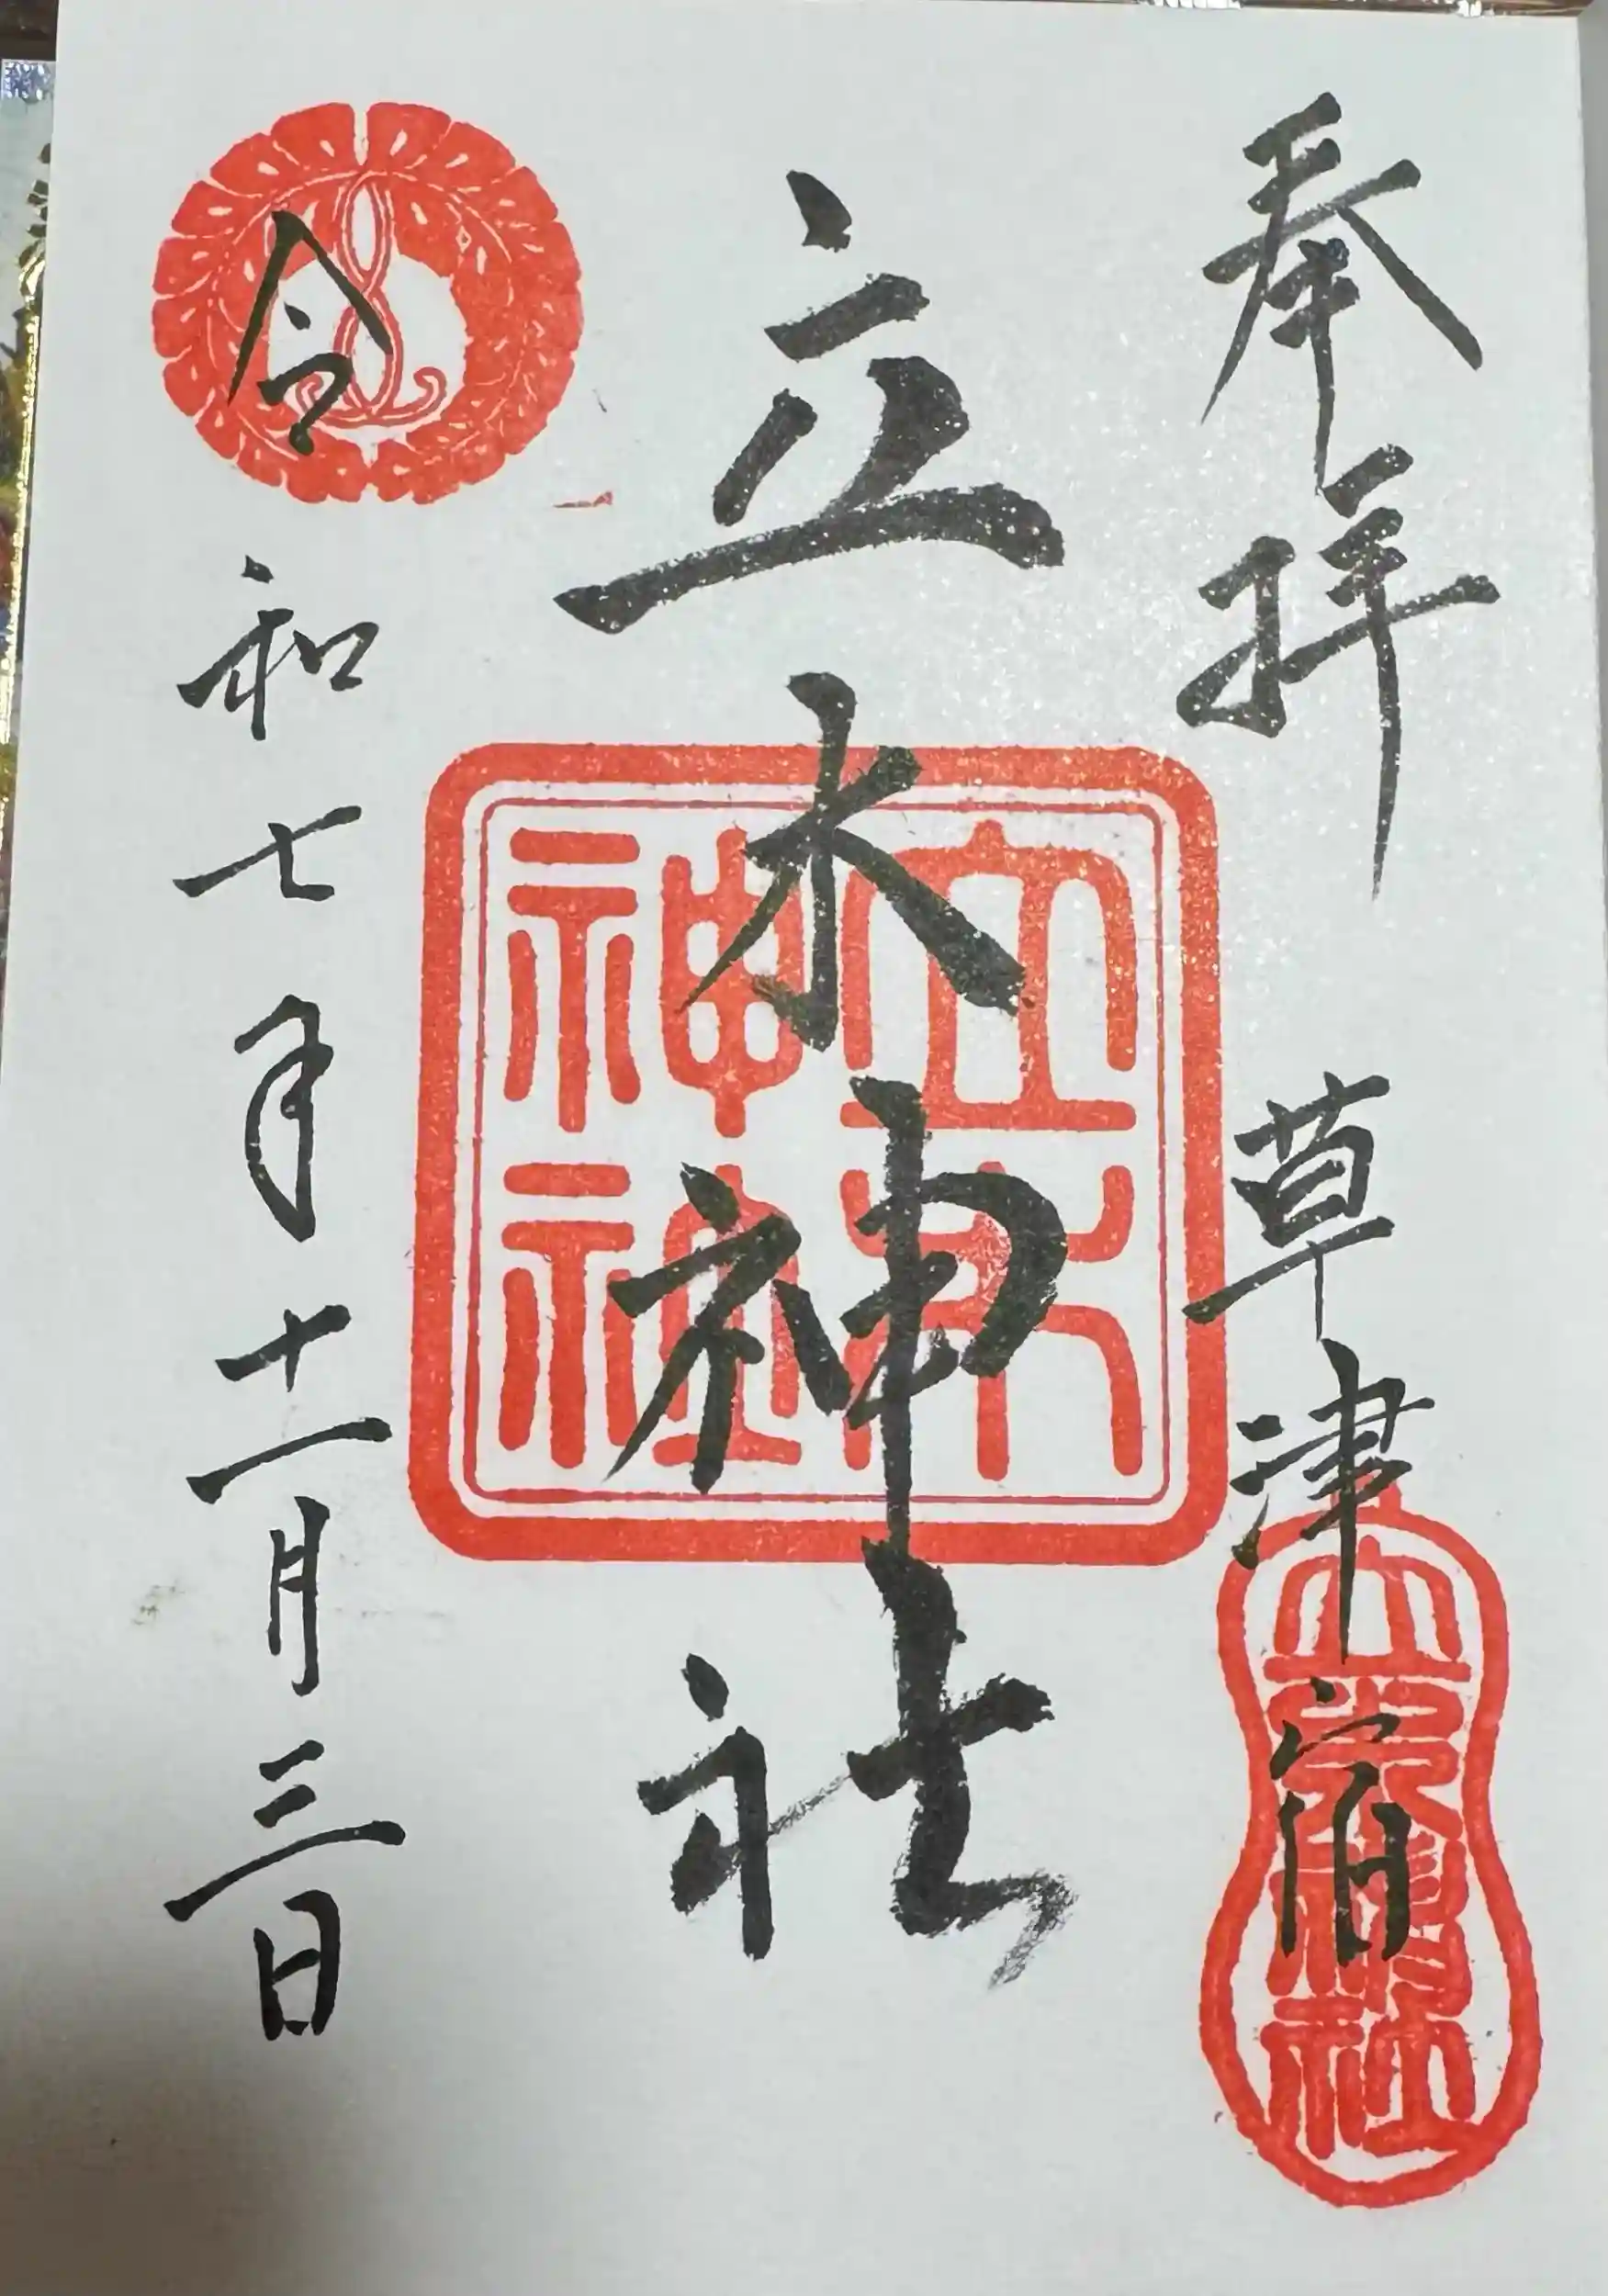 奉拝 草津宿
立木神社
立木神社
令和七年十一月三日